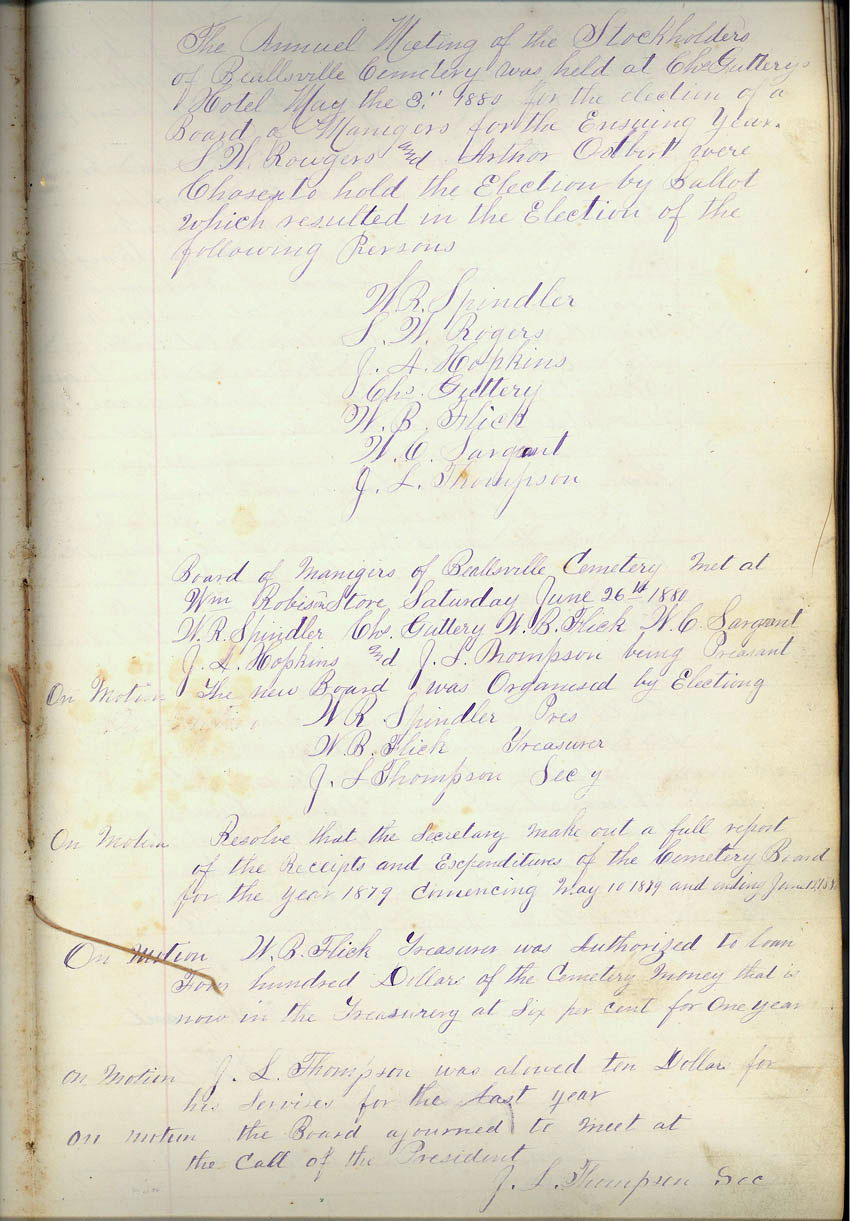 The Annuel Meeting of the Stockholders
of Beallsville Cemetery was held at Chs Gutterys
Hotel May the 3" 1880 for the election of a
Board of Manigers for the Ensuing Year.
S. W. Rougers and Arthor Odbert were
Chosen to hold the Election by Ballot
which resulted in the Election of the
following Persons
W. R. Spindler
S. W. Rogers
J. A. Hopkins
Chs. Guttery
W. B. Flick
W. C. Sargant
J. L. Thompson
Board of Manigirs of Beallsville Cemetery Met at
Wm Robison Store Saturday June 26th 1880
W. R. Spindler Chs. Guttery W. B. Flick W. C. Sargant
J. A. Hopkins and J. L. Thompson being Preasant
On Motion The new Board was Organised by Electiong
W R Spindler Pres
W. B. Flick Treasurer
J. L Thompson Secy
On Motion Resolve that the Secretary Make out a full report
of the Receipts and Expenditures of the Cemetery Board
for the year 1879 Comencing May 10 1879 and ending June
On Motion W. B. Flick Treasurer was Authorized to loan
Four hundred Dollars of the Cemetery Money that is
now in the Treasurery at Six per cent for One year
On Motion J. L. Thompson was alowed ten Dollars for
his Servises for the Last year
On motion the Board ajourned to Meet at
the Call of the President
J. L. Thompson Sec